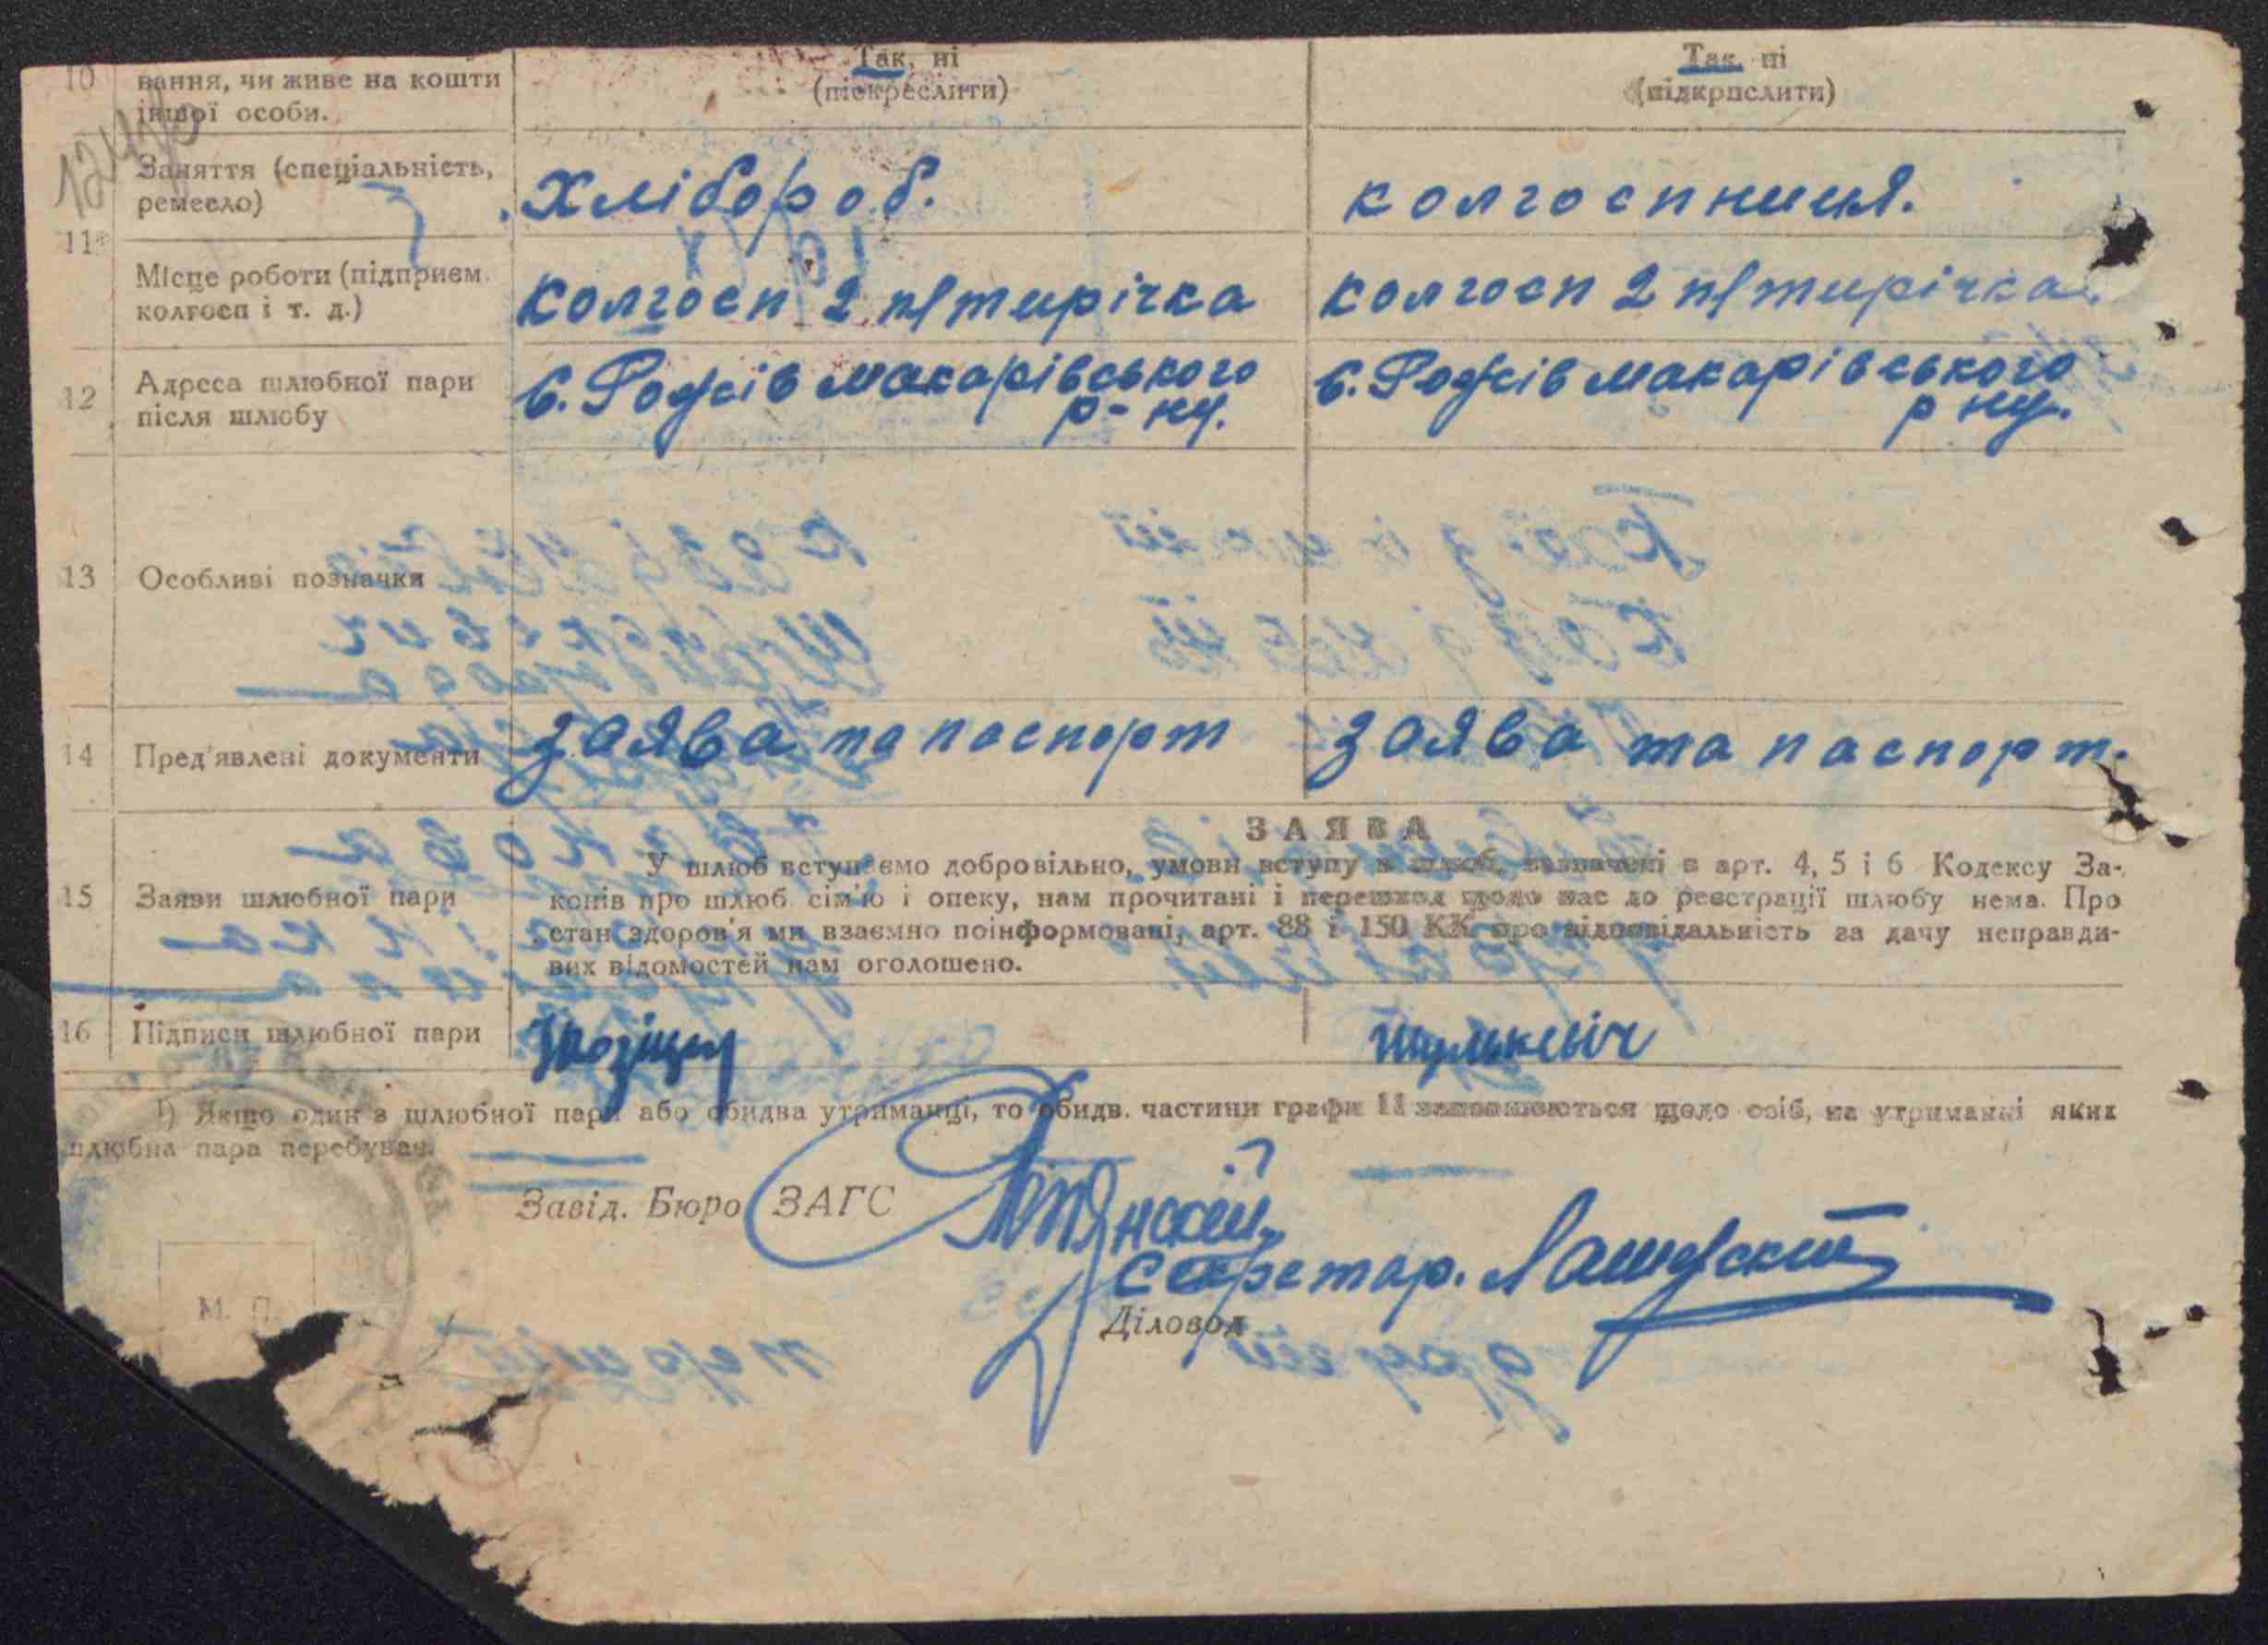 10 вання, чи живе на кошти іншої особи.
Так, ні
(підкреслити)
Так, ні
(підкрислити)
11
Заняття (спеціальність, ремесло)
Хлібороб.
колгоспниця.
Місце роботи (підприєм. колгосп і т. д.)
колгосп 2 п/тирічка
колгосп 2 п/тирічка.
12 Адреса шлюбної пари після шлюбу
с. Рожів Макарівського р-ну.
с. Рожів Макарівського р ну.
13 Особливі позначки
14 Пред'явлені документи
заява та паспорт
заява та паспорт.
ЗАЯВА
15 Заяви шлюбної пари
У шлюб вступаємо добровільно, умови вступу в шлюб, зазначені в арт. 4, 5 і 6 Кодексу За-
конів про шлюб сім'ю і опеку, нам прочитані і перешкод щодо нас до реєстрації шлюбу нема. Про
стан здоров'я ми взаємно поінформовані, арт. 88 і 150 КК про відповідальність за дачу неправди-
вих відомостей нам оголошено.
16 Підписи шлюбної пари
¹) Якщо один з шлюбної пари або обидва утриманці, то обидв. частини графи 11 заповнюються щодо осіб, на утриманні яких
шлюбна пара перебуває.
Завід. Бюро ЗАГС
секретар.
Діловод
М. П.